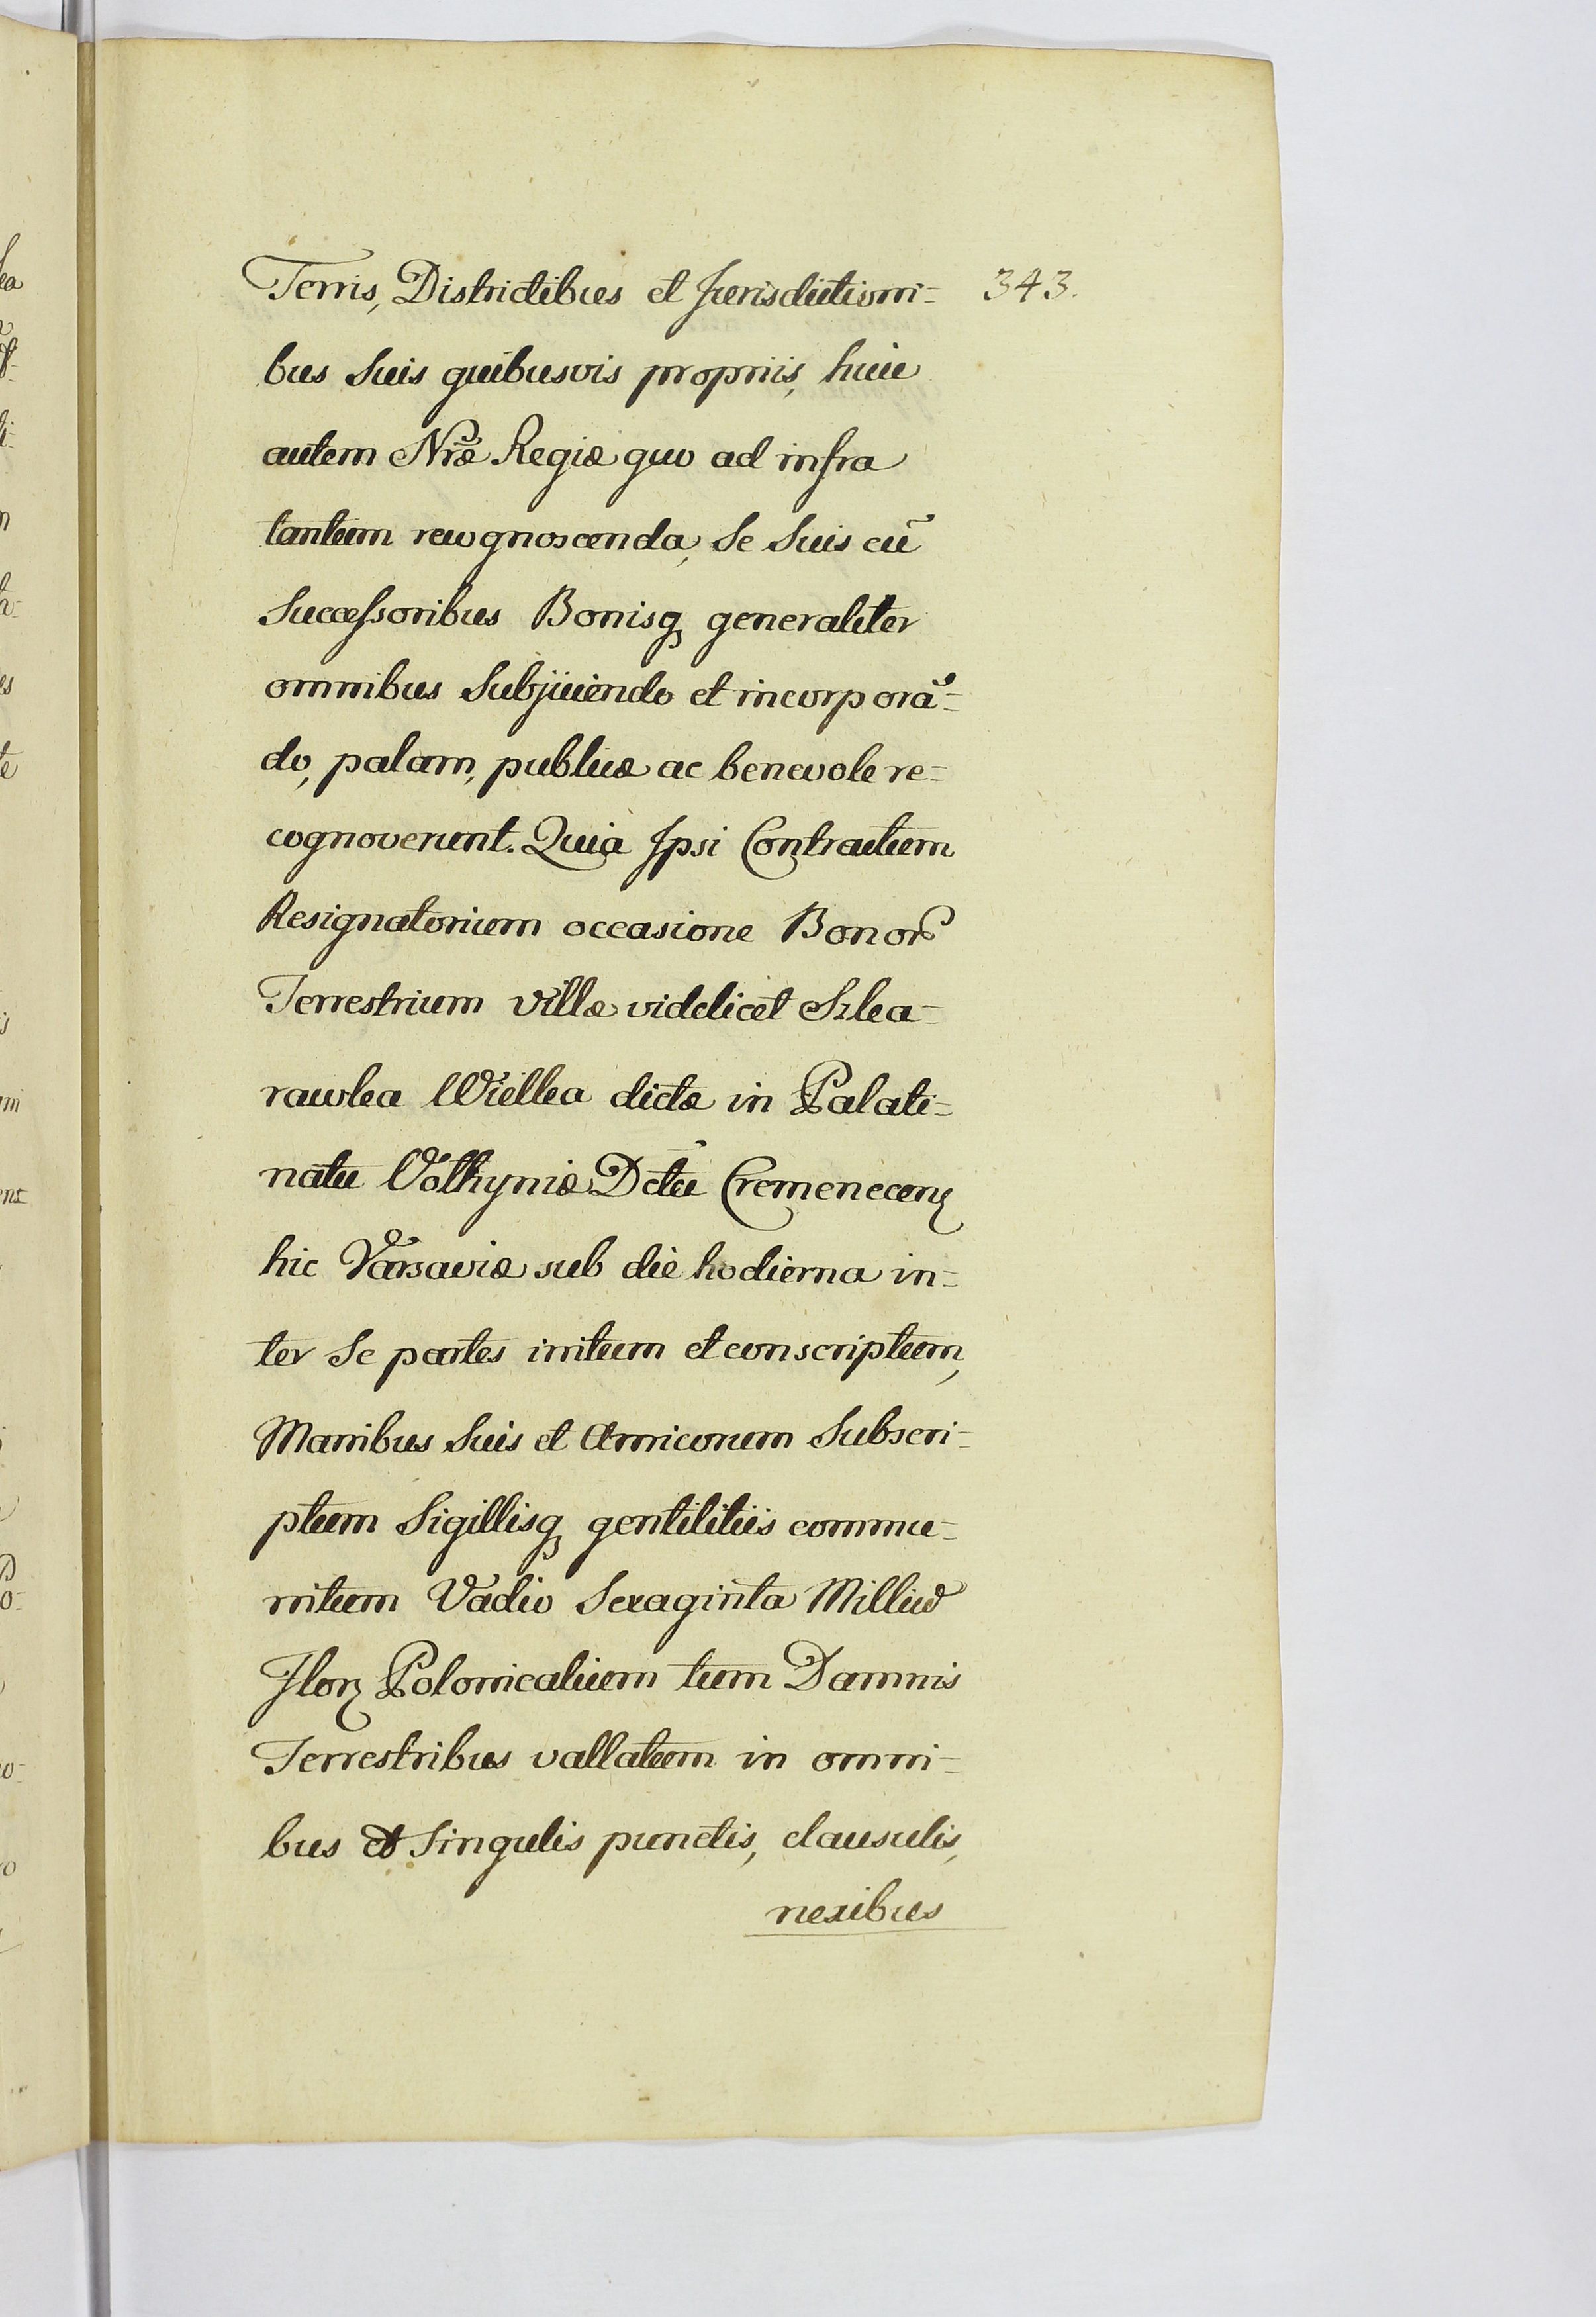 343.
Terris, Districtibus et Jurisdictioni=
bus Suis quibusvis propriis, huic
autem Nr̃æ Regiæ quo ad infra
tantum recognoscenda, Se Suis cũ
Successoribus Bonisq̃ generaliter
omnibus Subjiciendo et incorporã=
do, palam, publicæ ac benevole re=
cognoverunt. Quia Ipsi Contractum
Resignatorium occasione Bonor
Terrestrium Villæ videlicet Szka=
rawka Wielka dictæ in Palati=
natu Volhyniæ Dctũ Cremenecen
hic Varsaviæ sub die hodierna in=
ter Se partes initum et conscriptum,
Manibus Suis et Amicorum Subscri=
ptum Sigillisq̃ gentilitiis commu=
nitum Vadio Sexaginta Milliũ
Flor Polonicalium tum Damnis
Terrestribus vallatum in omni=
bus et Singulis punctis, clausulis,
nexibus